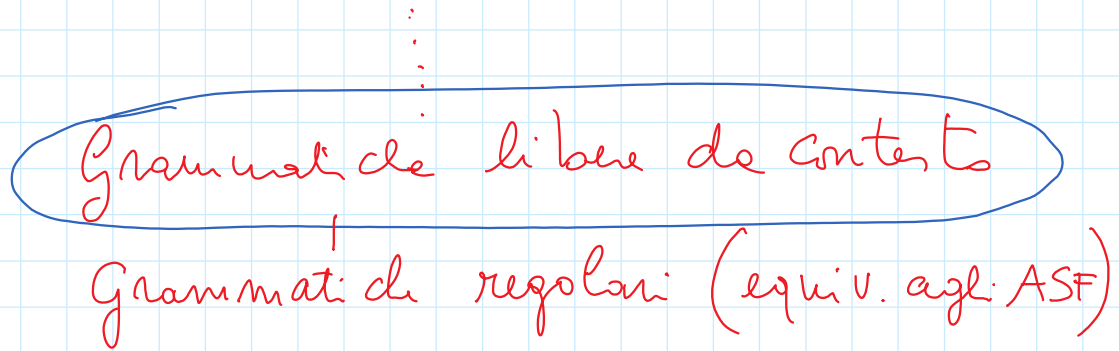 Grammatiche libere da contesto
Grammatiche regolari (equiv. agli ASF)